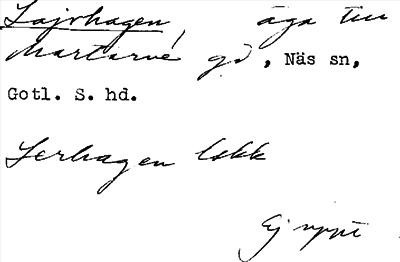 Lajrhagen, äga till
Martarve gd, Näs sn,
Gotl. S. hd.
Lerhagen lskk
Ej uppt